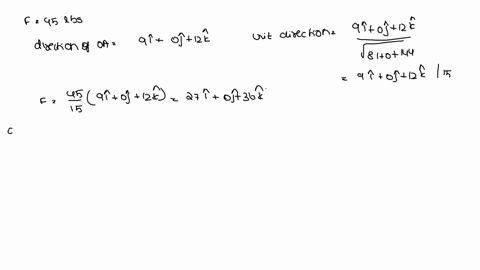 F = 45 lbs
direction of OA = 9î + 0ĵ + 12k̂
unit direction = 9î + 0ĵ + 12k̂ / √81+0+144
= 9î + 0ĵ + 12k̂ / 15
F = 45/15 (9î + 0ĵ + 12k̂) = 27î + 0ĵ + 36k̂
C